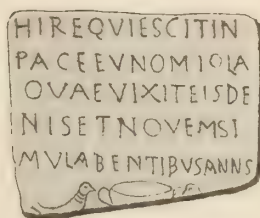 HIREQVIESCITIN
PACEEVNOMIOLA
OVAEVIXITEISDE
NISETNOVEMSI
MVLABENTIBVSANNS